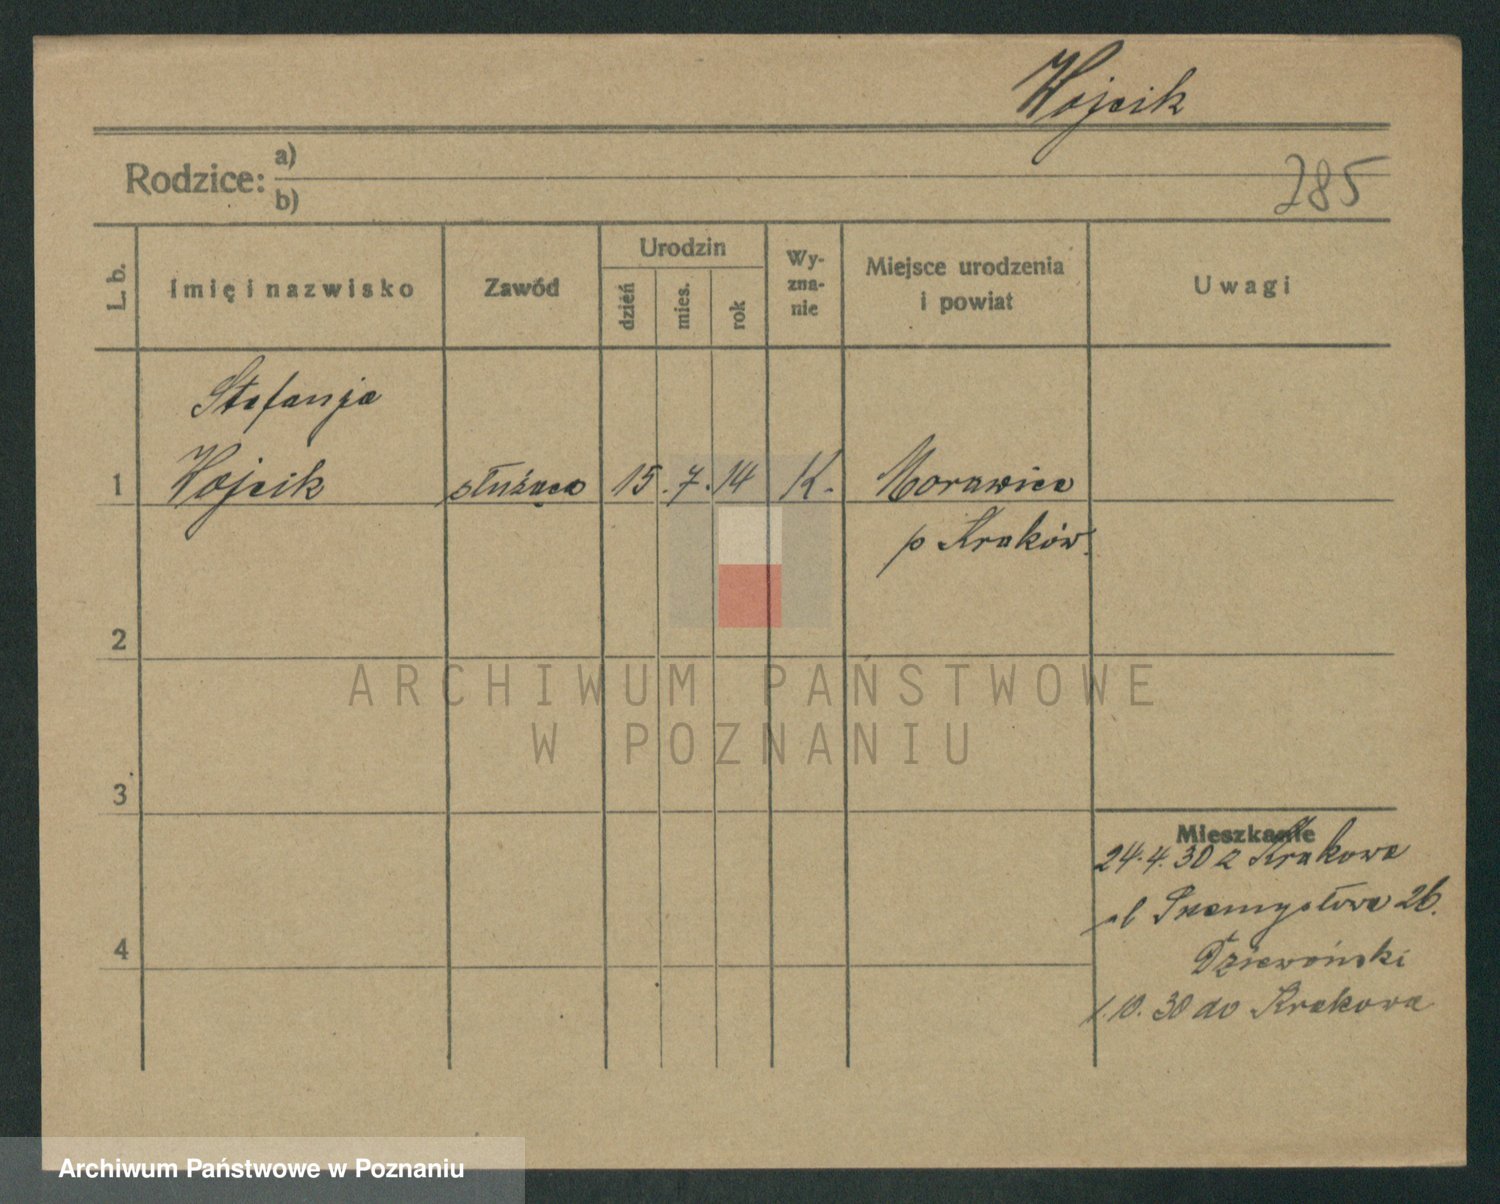 Wojcik
Rodzice: a)
b)
285
L. b.
Imię i nazwisko
Zawód
Urodzin
dzień
mies.
rok
Wy-
zna-
nie
Miejsce urodzenia
i powiat
Uwagi
Stefanja
1 Wojcik służąca 15. 7. 14 K. Morawica
p Kraków
2
3
4
Mieszkanie
24.4.30 z Krakowa
ul Przemysłowa 26.
Dziewoński
1.10.30 do Krakowa
ARCHIWUM PAŃSTWOWE
W POZNANIU
Archiwum Państwowe w Poznaniu